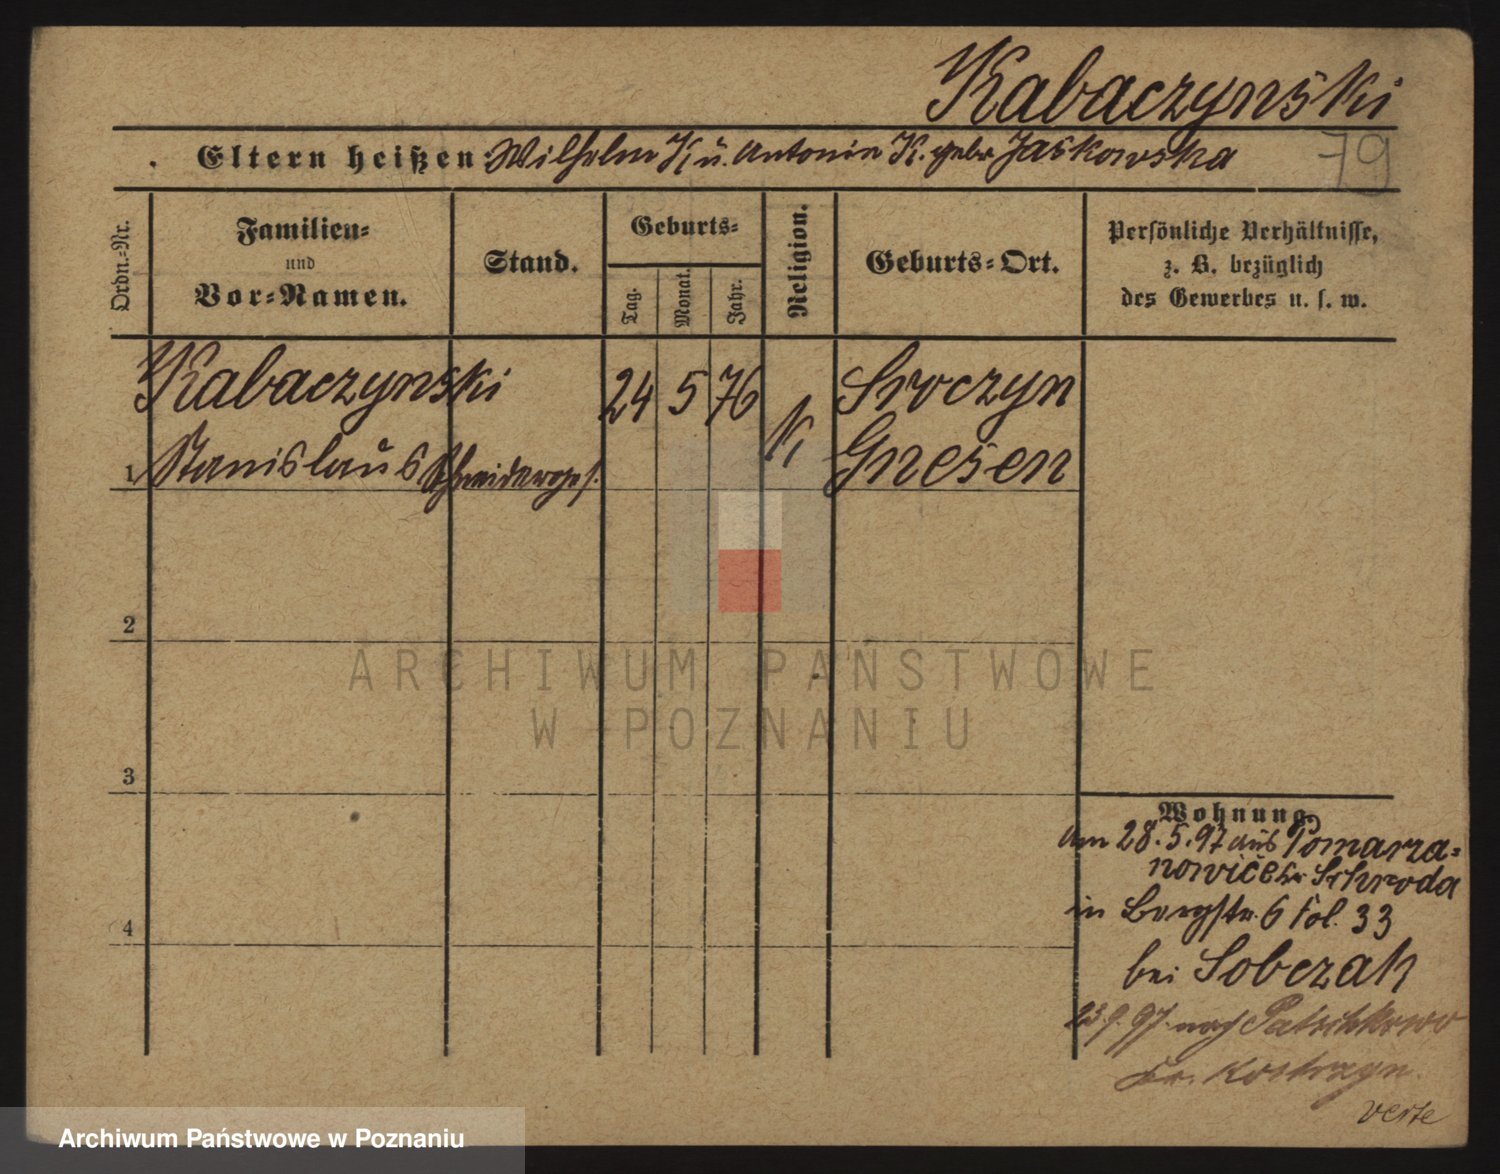 Kabaczynski
Eltern heißen: Wilhelm K. u. Antonie K. gebr Jaskowska
79
Ordn.-Nr.
Familien-
und
Vor-Namen.
Stand.
Geburts-
Tag.
Monat.
Jahr.
Religion.
Geburts-Ort.
Persönliche Verhältnisse,
z. B. bezüglich
des Gewerbes u. s. w.
Kabaczynski 24 5 76 K Sroczyn
1 Stanislaus Schneiderges. Gnesen
2
3
4
Wohnung.
am 28.5.97 aus Pomarza-
nowice Schroda
in Bergstr. 6 Fol. 33
bei Sobczak
23.9.97 nach
Kr. Kostrzyn.
verte
ARCHIWUM PAŃSTWOWE
W POZNANIU
Archiwum Państwowe w Poznaniu